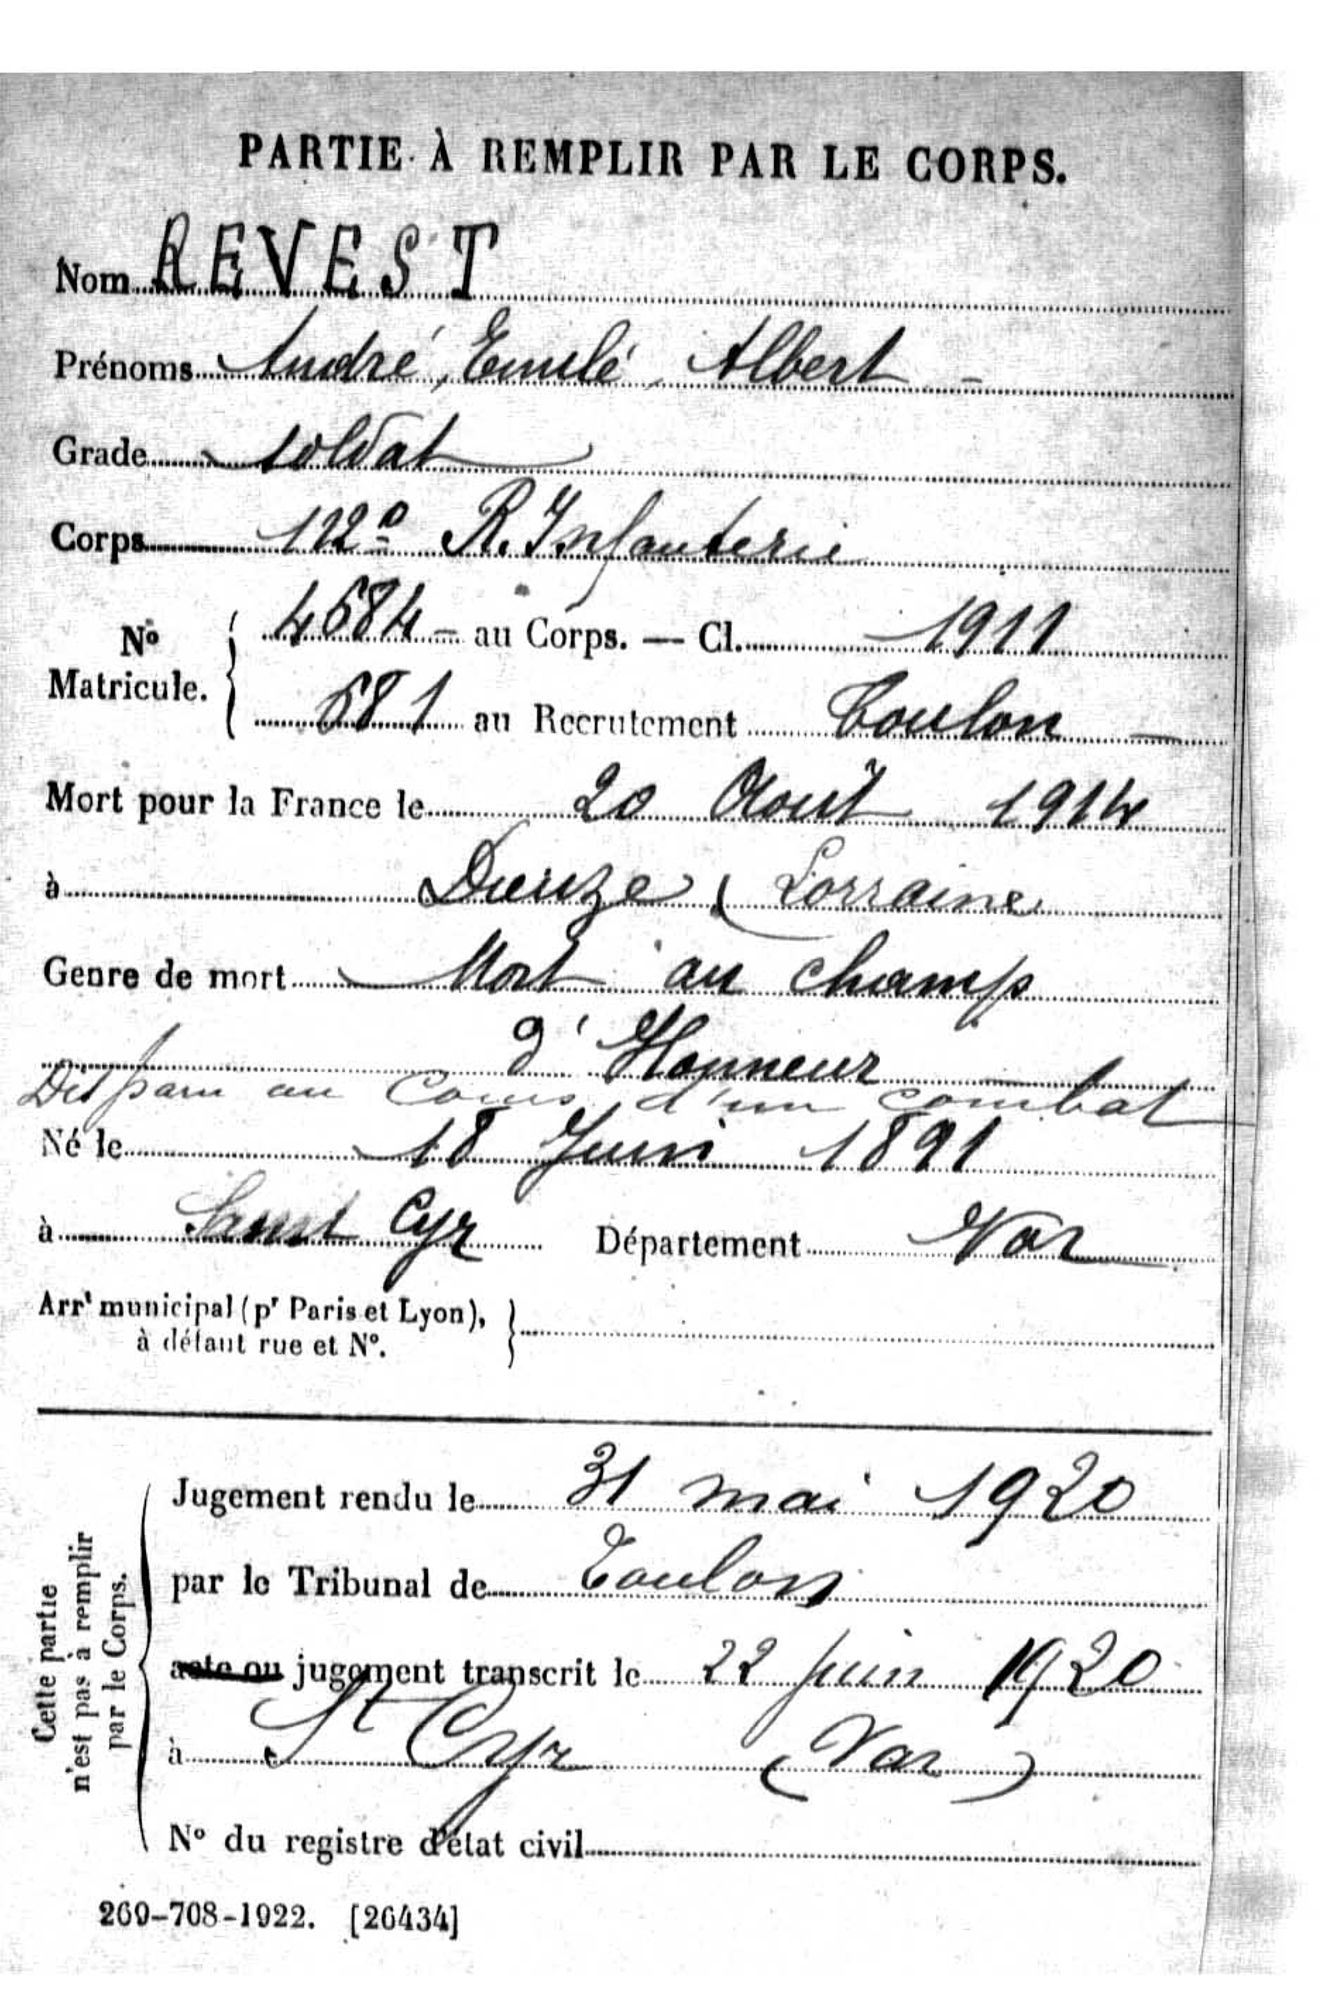 PARTIE À REMPLIR PAR LE CORPS.
Nom REVEST
Prénoms André, Emile, Albert -
Grade soldat
Corps 112e R. Infanterie
No Matricule. { 4684 - au Corps. — Cl. 1911
681 au Recrutement Toulon -
Mort pour la France le 20 Août 1914
à Dieuze (Lorraine
Genre de mort Mort au champ
d'Honneur
Disparu au cours d'un combat
Né le 18 Juin 1891
à Saint Cyr Département Var
Arrt municipal (pr Paris et Lyon), }
à défaut rue et No.
Cette partie
n'est pas à remplir
par le Corps.
Jugement rendu le 31 mai 1920
par le Tribunal de Toulon
acte ou jugement transcrit le 22 juin 1920
à St Cyr (Var)
No du registre d'état civil
269-708-1922. [26434]